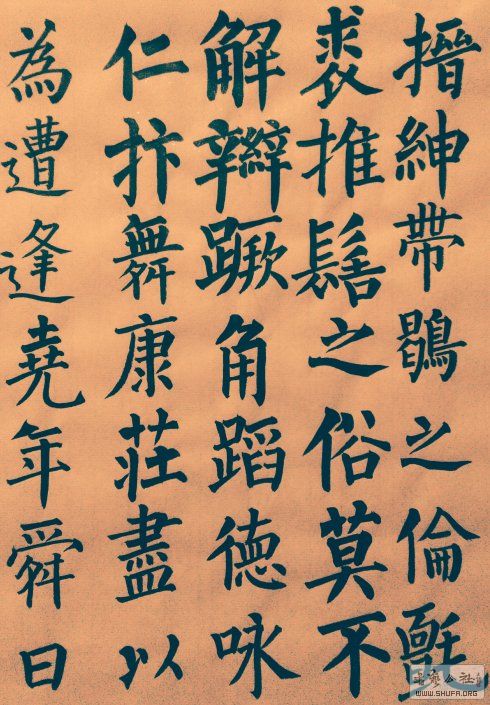 搢紳帶鶡之倫氈
裘推髻之俗莫不
解辮蹶角蹈德咏
仁抃舞康莊盡以
為遭逢堯年舜日
公社
WWW.SHUFA.ORG